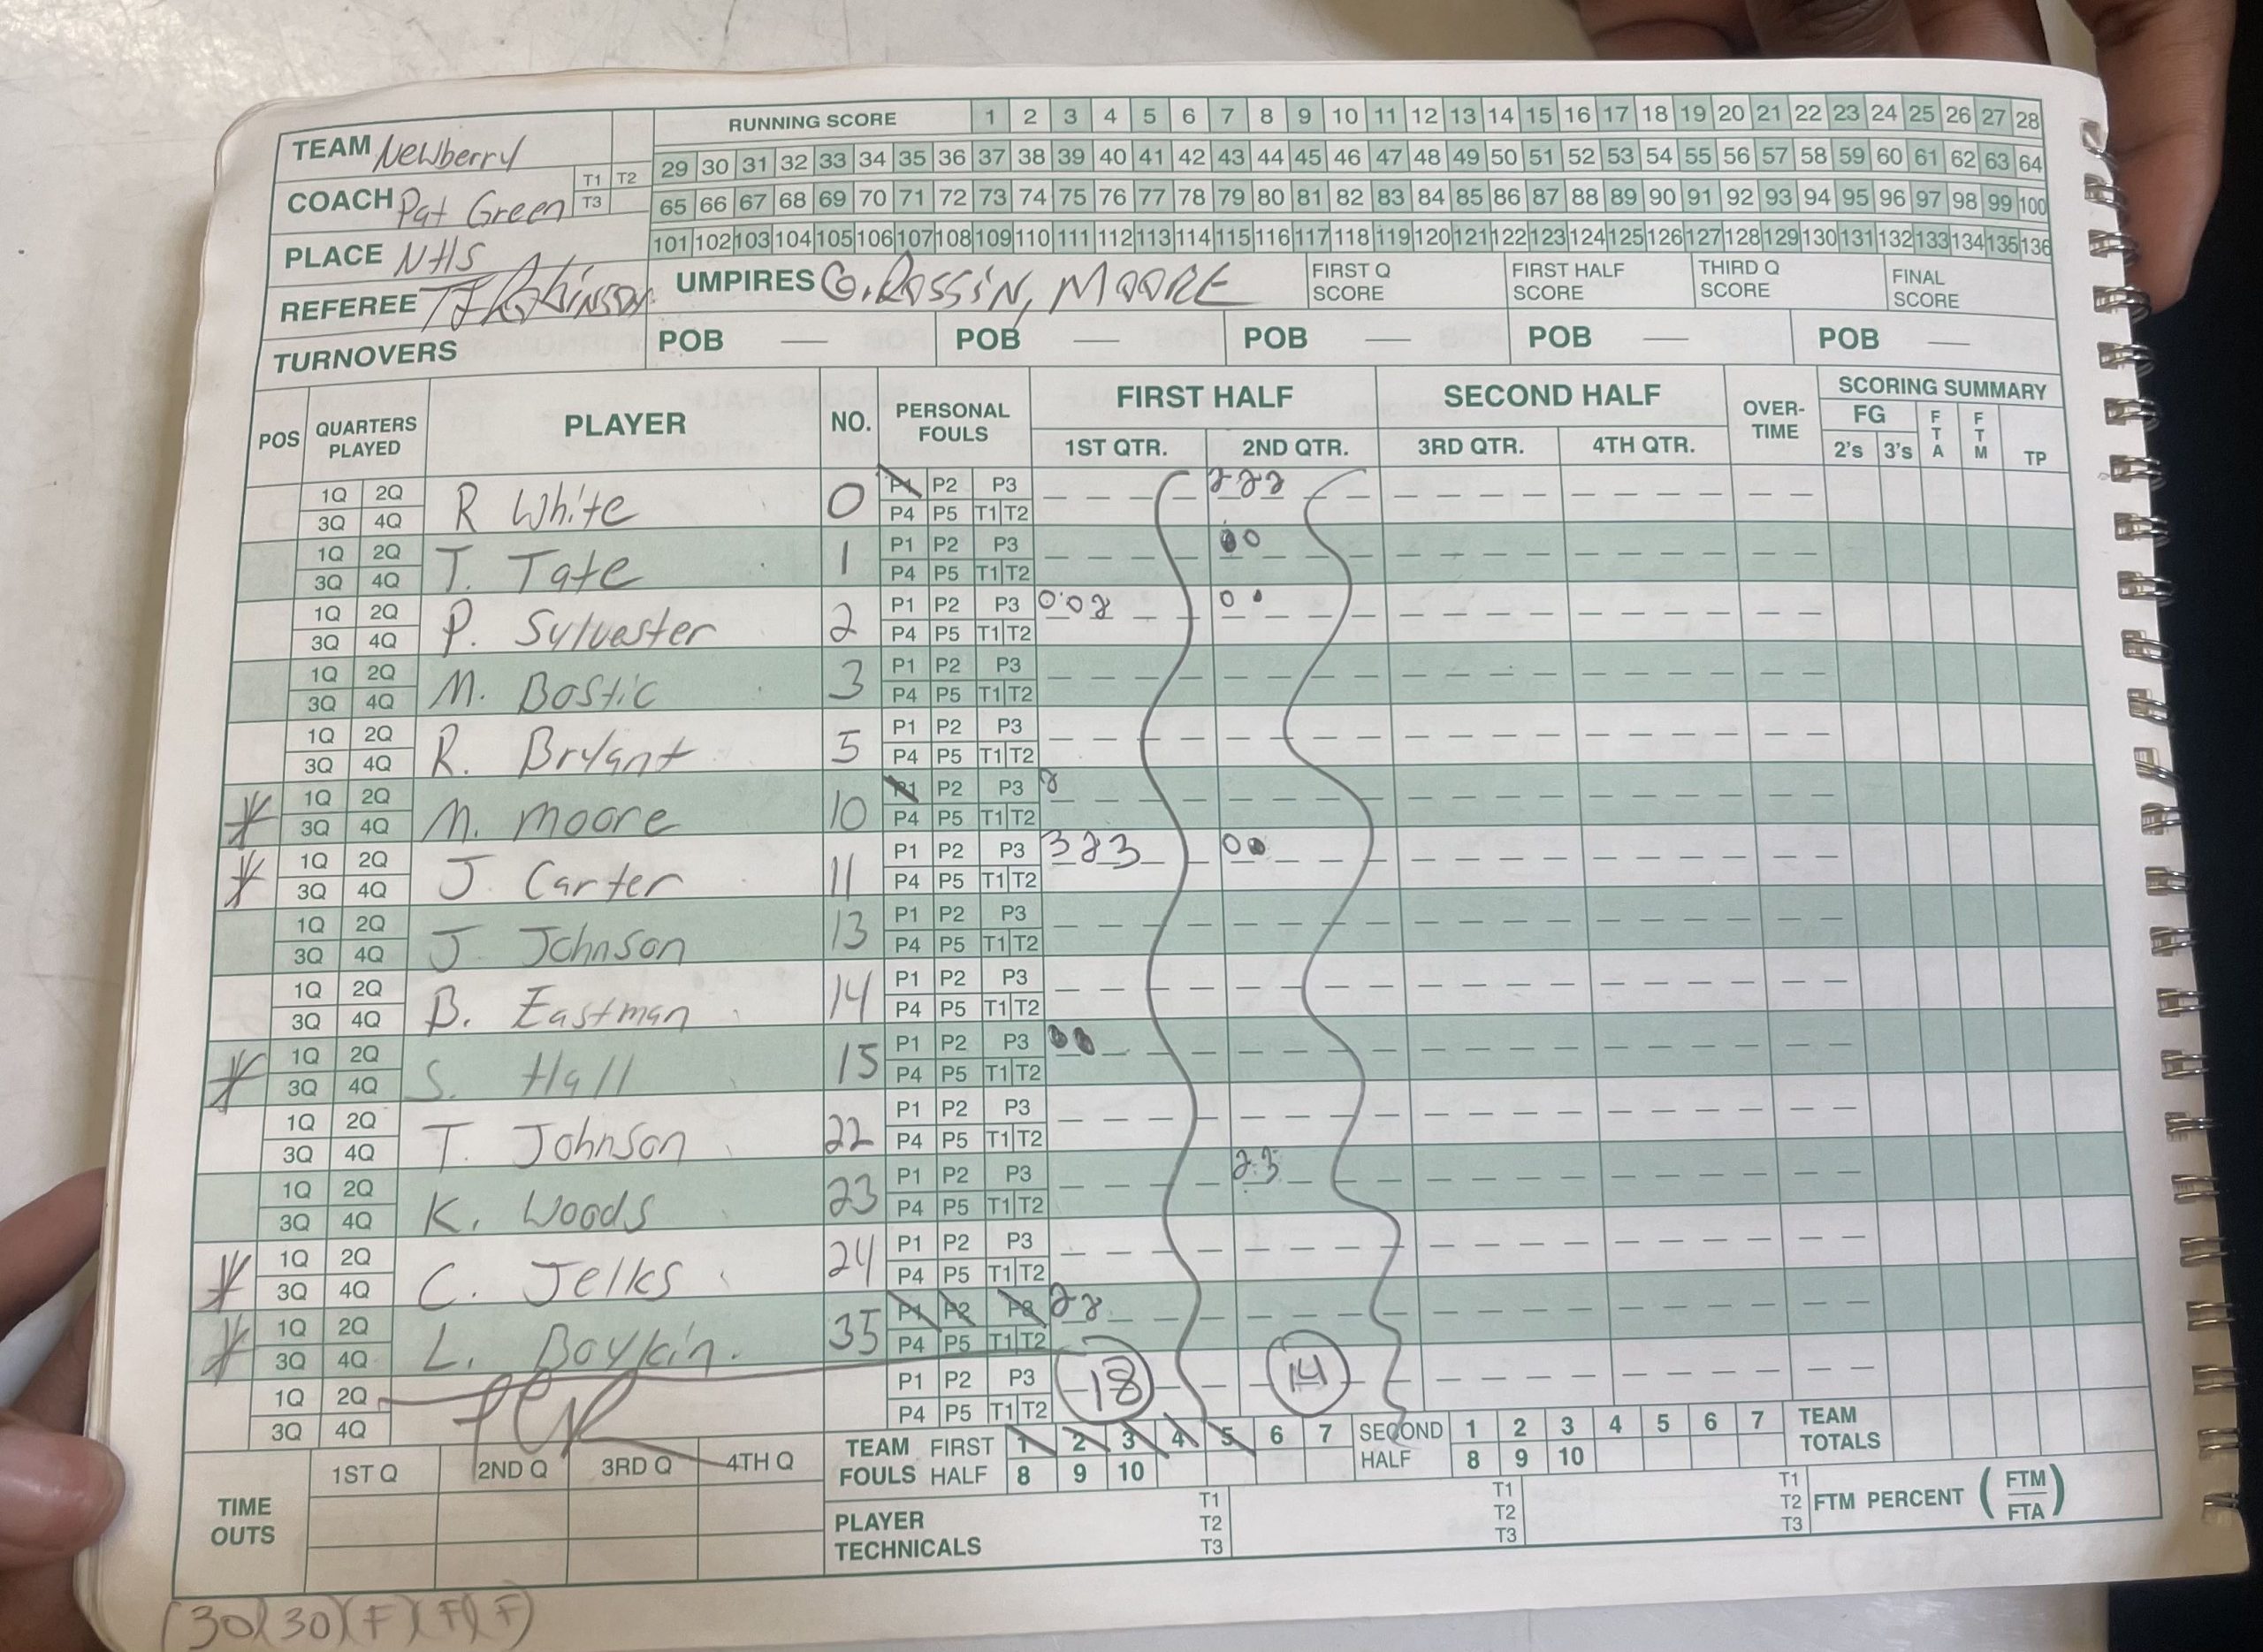 TEAM Newberry RUNNING SCORE 1 2 3 4 5 6 7 8 9 10 11 12 13 14 15 16 17 18 19 20 21 22 23 24 25 26 27 28
T1 T2 29 30 31 32 33 34 35 36 37 38 39 40 41 42 43 44 45 46 47 48 49 50 51 52 53 54 55 56 57 58 59 60 61 62 63 64
COACH Pat Green T3 65 66 67 68 69 70 71 72 73 74 75 76 77 78 79 80 81 82 83 84 85 86 87 88 89 90 91 92 93 94 95 96 97 98 99 100
101 102 103 104 105 106 107 108 109 110 111 112 113 114 115 116 117 118 119 120 121 122 123 124 125 126 127 128 129 130 131 132 133 134 135 136
PLACE NHS
REFEREE TJ Robinson UMPIRES G. Rossin, MOORE FIRST Q SCORE FIRST HALF SCORE THIRD Q SCORE FINAL SCORE
TURNOVERS POB — POB — POB — POB — POB —
POS QUARTERS PLAYED PLAYER NO. PERSONAL FOULS FIRST HALF SECOND HALF OVER-TIME SCORING SUMMARY
1ST QTR. 2ND QTR. 3RD QTR. 4TH QTR. FG 2's 3's FTA FTM TP
1Q 2Q R White 0 P1 P2 P3 2 2 2
3Q 4Q P4 P5 T1 T2
1Q 2Q T. Tate 1 P1 P2 P3
3Q 4Q P4 P5 T1 T2
1Q 2Q P. Sylvester 2 P1 P2 P3 0 0 2 0
3Q 4Q P4 P5 T1 T2
1Q 2Q M. Bostic 3 P1 P2 P3
3Q 4Q P4 P5 T1 T2
1Q 2Q R. Bryant 5 P1 P2 P3
3Q 4Q P4 P5 T1 T2
1Q 2Q M. Moore 10 P1 P2 P3 2
3Q 4Q P4 P5 T1 T2
1Q 2Q J. Carter 11 P1 P2 P3 3 2 3 0
3Q 4Q P4 P5 T1 T2
1Q 2Q J. Johnson 13 P1 P2 P3
3Q 4Q P4 P5 T1 T2
1Q 2Q B. Eastman 14 P1 P2 P3
3Q 4Q P4 P5 T1 T2
1Q 2Q S. Hall 15 P1 P2 P3
3Q 4Q P4 P5 T1 T2
1Q 2Q T. Johnson 22 P1 P2 P3
3Q 4Q P4 P5 T1 T2
1Q 2Q K. Woods 23 P1 P2 P3 2 3
3Q 4Q P4 P5 T1 T2
1Q 2Q C. Jelks 24 P1 P2 P3
3Q 4Q P4 P5 T1 T2
1Q 2Q L. Boykin. 35 P1 P2 P3 2 2
3Q 4Q P4 P5 T1 T2
1Q 2Q P1 P2 P3 18 14
3Q 4Q P4 P5 T1 T2
TIME OUTS 1ST Q 2ND Q 3RD Q 4TH Q
TEAM FOULS FIRST HALF 1 2 3 4 5 6 7 SECOND HALF 1 2 3 4 5 6 7 TEAM TOTALS
8 9 10 8 9 10
PLAYER TECHNICALS T1 T2 T3 T1 T2 T3 T1 T2 T3 FTM PERCENT (FTM/FTA)
(30)(30)(F)(F)(F)